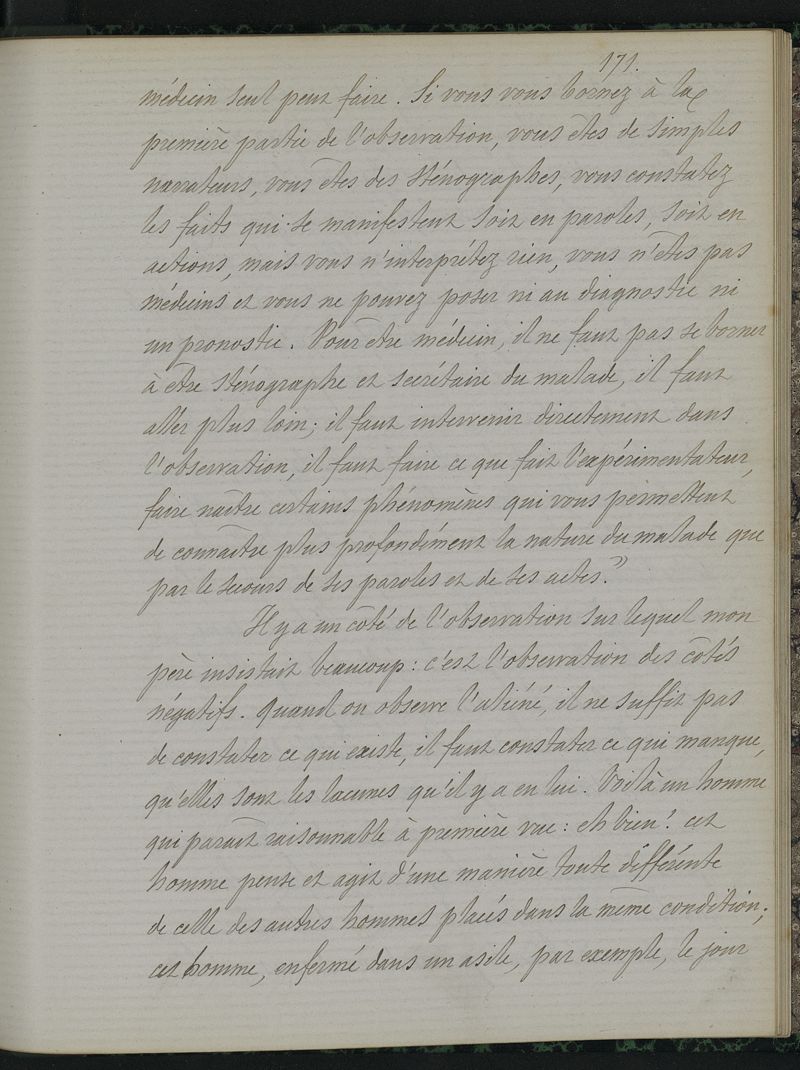 171.
médecin seul peut faire. Si vous vous bornez à la
première partie de l'observation, vous êtes de simples
narrateurs, vous êtes des sténographes, vous constatez
les faits qui se manifestent soit en paroles, soit en
actions, mais vous n'interprétez rien, vous n'êtes pas
médecins et vous ne pouvez poser ni au diagnostic ni
un pronostic. Pour être médecin, il ne faut pas se borner
à être sténographe et secrétaire du malade, il faut
aller plus loin; il faut intervenir directement dans
l'observation, il faut faire ce que fait l'expérimentateur,
faire naître certains phénomènes qui vous permettent
de connaître plus profondément la nature du malade que
par le secours de ses paroles et de ses actes."
Il y a un côté de l'observation sur lequel mon
père insistait beaucoup: c'est l'observation des côtés
négatifs. Quand on observe l'aliéné, il ne suffit pas
de constater ce qui existe, il faut constater ce qui manque,
qu'elles sont les lacunes qu'il y a en lui. Voilà un homme
qui paraît raisonnable à première vue: eh bien! cet
homme pense et agit d'une manière toute différente
de celle des autres hommes placés dans la même condition;
cet homme, enfermé dans un asile, par exemple, le jour